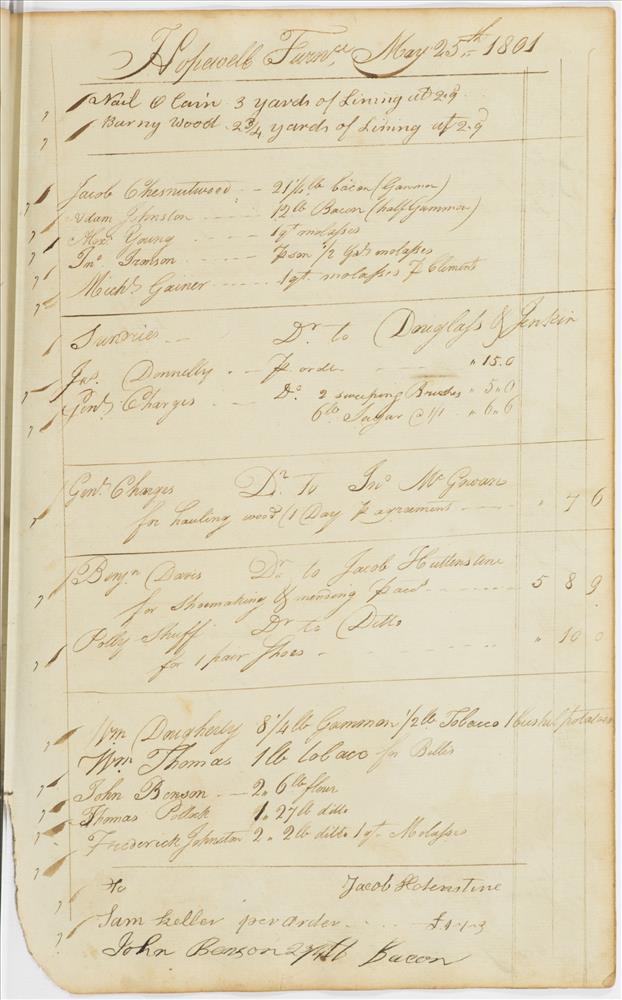 Hopewell Furnce May 25th 1801
Nail O Cain 3 yards of Lining at 2.9
Barny Wood 2 3/4 yards of Lining at 2.9
Jacob Chesnutwood - 21 1/4 lb bacon (Gammon)
Adam Johnston - - - 12 lb Bacon (half Gammon)
Alexr Young - - - 1 qt molasses
Jno Ironson - - - p son 1/2 Gal molasses
Michl Gainer - - - 1 qt. molasses p Clement
Sundries - - Dr to Douglass & Jenkin
Jas. Donnelly - - p order - - - " 15.0
Genl Charges - - Do 2 sweeping Brushes " 5.0
6 lb Sugar @ 1/1 " 6.6
Genl Charges Dr To Jno McGowan
for hauling wood (1 Day p agreement - - - " 7 6
Benjn Davis Dr to Jacob Huttenstine
for Shoemaking & mending paid - - - 5 8 9
Polly Shuff Dr to Ditto
for 1 pair Shoes - - - " 10 0
Wm Dougherty 8 1/4 lb Gammon 1/2 lb Tobacco 1 bushel potatoes
Wm Thomas 1 lb tobaco for Billes
John Benson - 2. 6 lb flour
Thomas Pollock 1. 27 lb ditto
Frederick Johnston 2. 2 lb ditto 1 qt. Molasses
to Jacob Hotenstine
Sam Keller per order - - - £4-1-3
John Benson lb Bacon